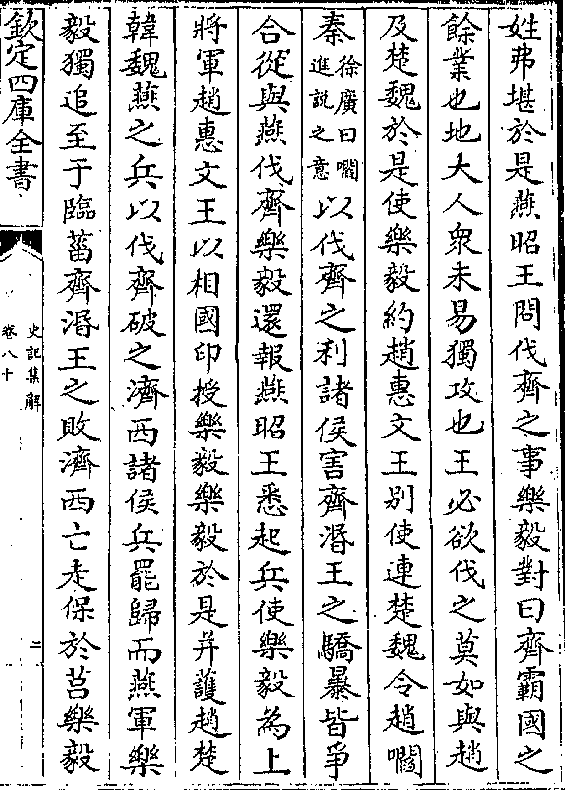 姓弗堪於是燕昭王問伐齊之事樂毅對曰齊霸國之
餘業也地大人衆未易獨攻也王必欲伐之莫如與趙
及楚魏於是使樂毅約趙惠文王别使連楚魏令趙嚪
秦徐廣曰嚪進説之意以伐齊之利諸侯害齊湣王之驕暴皆爭
合從與燕伐齊樂毅還報燕昭王悉起兵使樂毅為上
將軍趙惠文王以相國印授樂毅樂毅於是并護趙楚
韓魏燕之兵以伐齊破之濟西諸侯兵罷歸而燕軍樂
毅獨追至于臨菑齊湣王之敗濟西亡走保於莒樂毅
欽定四庫全書
史記集解
卷八十
二